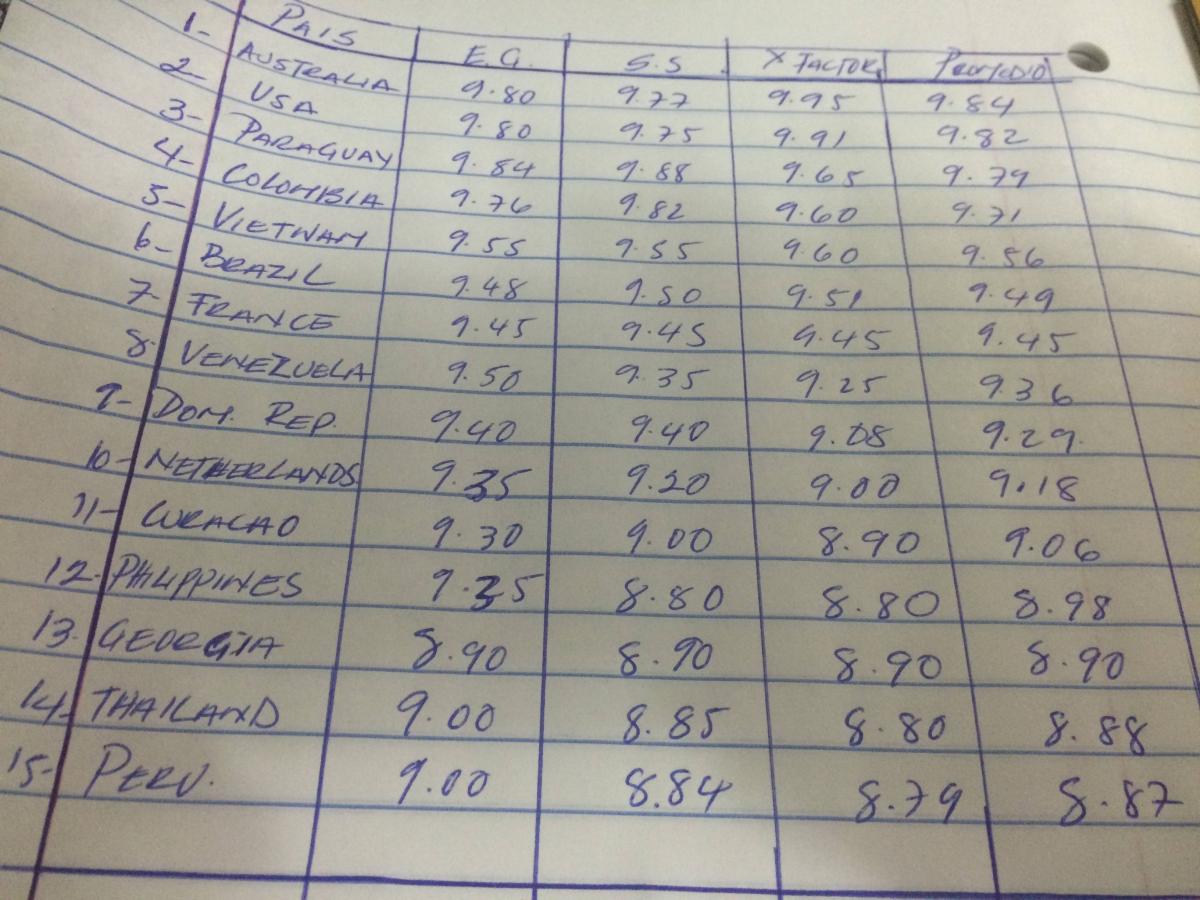 PAIS E.G. S.S X FACTOR PROMEDIO
1- AUSTRALIA 9.80 9.77 9.95 9.84
2- USA 9.80 9.75 9.91 9.82
3- PARAGUAY 9.84 9.88 9.65 9.79
4- COLOMBIA 9.76 9.82 9.60 9.71
5- VIETNAM 9.55 9.55 9.60 9.56
6- BRAZIL 9.48 9.50 9.51 9.49
7- FRANCE 9.45 9.45 9.45 9.45
8- VENEZUELA 9.50 9.35 9.25 9.36
9- DOM. REP. 9.40 9.40 9.08 9.29
10- NETHERLANDS 9.35 9.20 9.00 9.18
11- CURACAO 9.30 9.00 8.90 9.06
12- PHILIPPINES 9.35 8.80 8.80 8.98
13. GEORGIA 8.90 8.90 8.90 8.90
14- THAILAND 9.00 8.85 8.80 8.88
15- PERU. 9.00 8.84 8.79 8.87